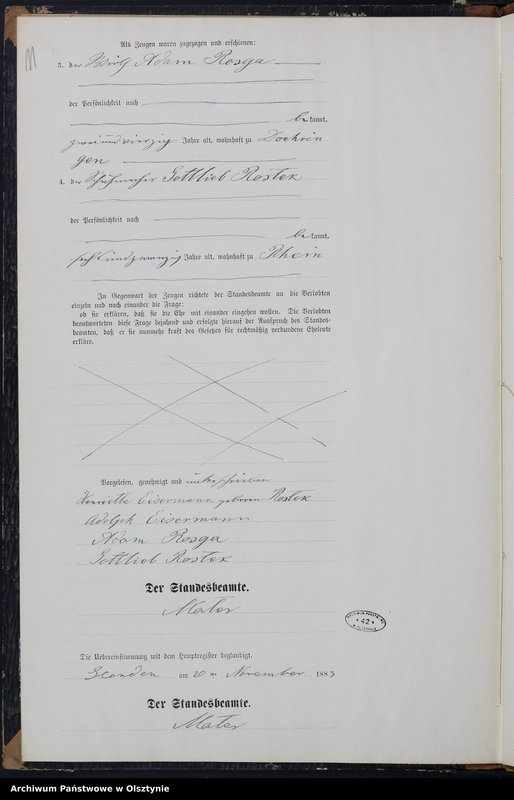 11
Als Zeugen waren zugezogen und erschienen:
3. der Wirth Adam Rosga
der Persönlichkeit nach
be kannt,
zweiundvierzig Jahre alt, wohnhaft zu Doehrin
gen
4. der Schuhmacher Gottlieb Rostek
der Persönlichkeit nach
be kannt,
sechsundzwanzig Jahre alt, wohnhaft zu Rhein
In Gegenwart der Zeugen richtete der Standesbeamte an die Verlobten
einzeln und nach einander die Frage:
ob sie erklären, daß sie die Ehe mit einander eingehen wollen. Die Verlobten
beantworteten diese Frage bejahend und erfolgte hierauf der Ausspruch des Standes-
beamten, daß er sie nunmehr kraft des Gesetzes für rechtmäßig verbundene Eheleute
erkläre.
Vorgelesen, genehmigt und unterschrieben
Henriette Eisermann geboren Rostek
Adolph Eisermann
Adam Rosga
Gottlieb Rostek
Der Standesbeamte.
Mater
42
Die Uebereinstimmung mit dem Hauptregister beglaubigt.
am 20 ten November 1883
Der Standesbeamte.
Mater
Archiwum Państwowe w Olsztynie